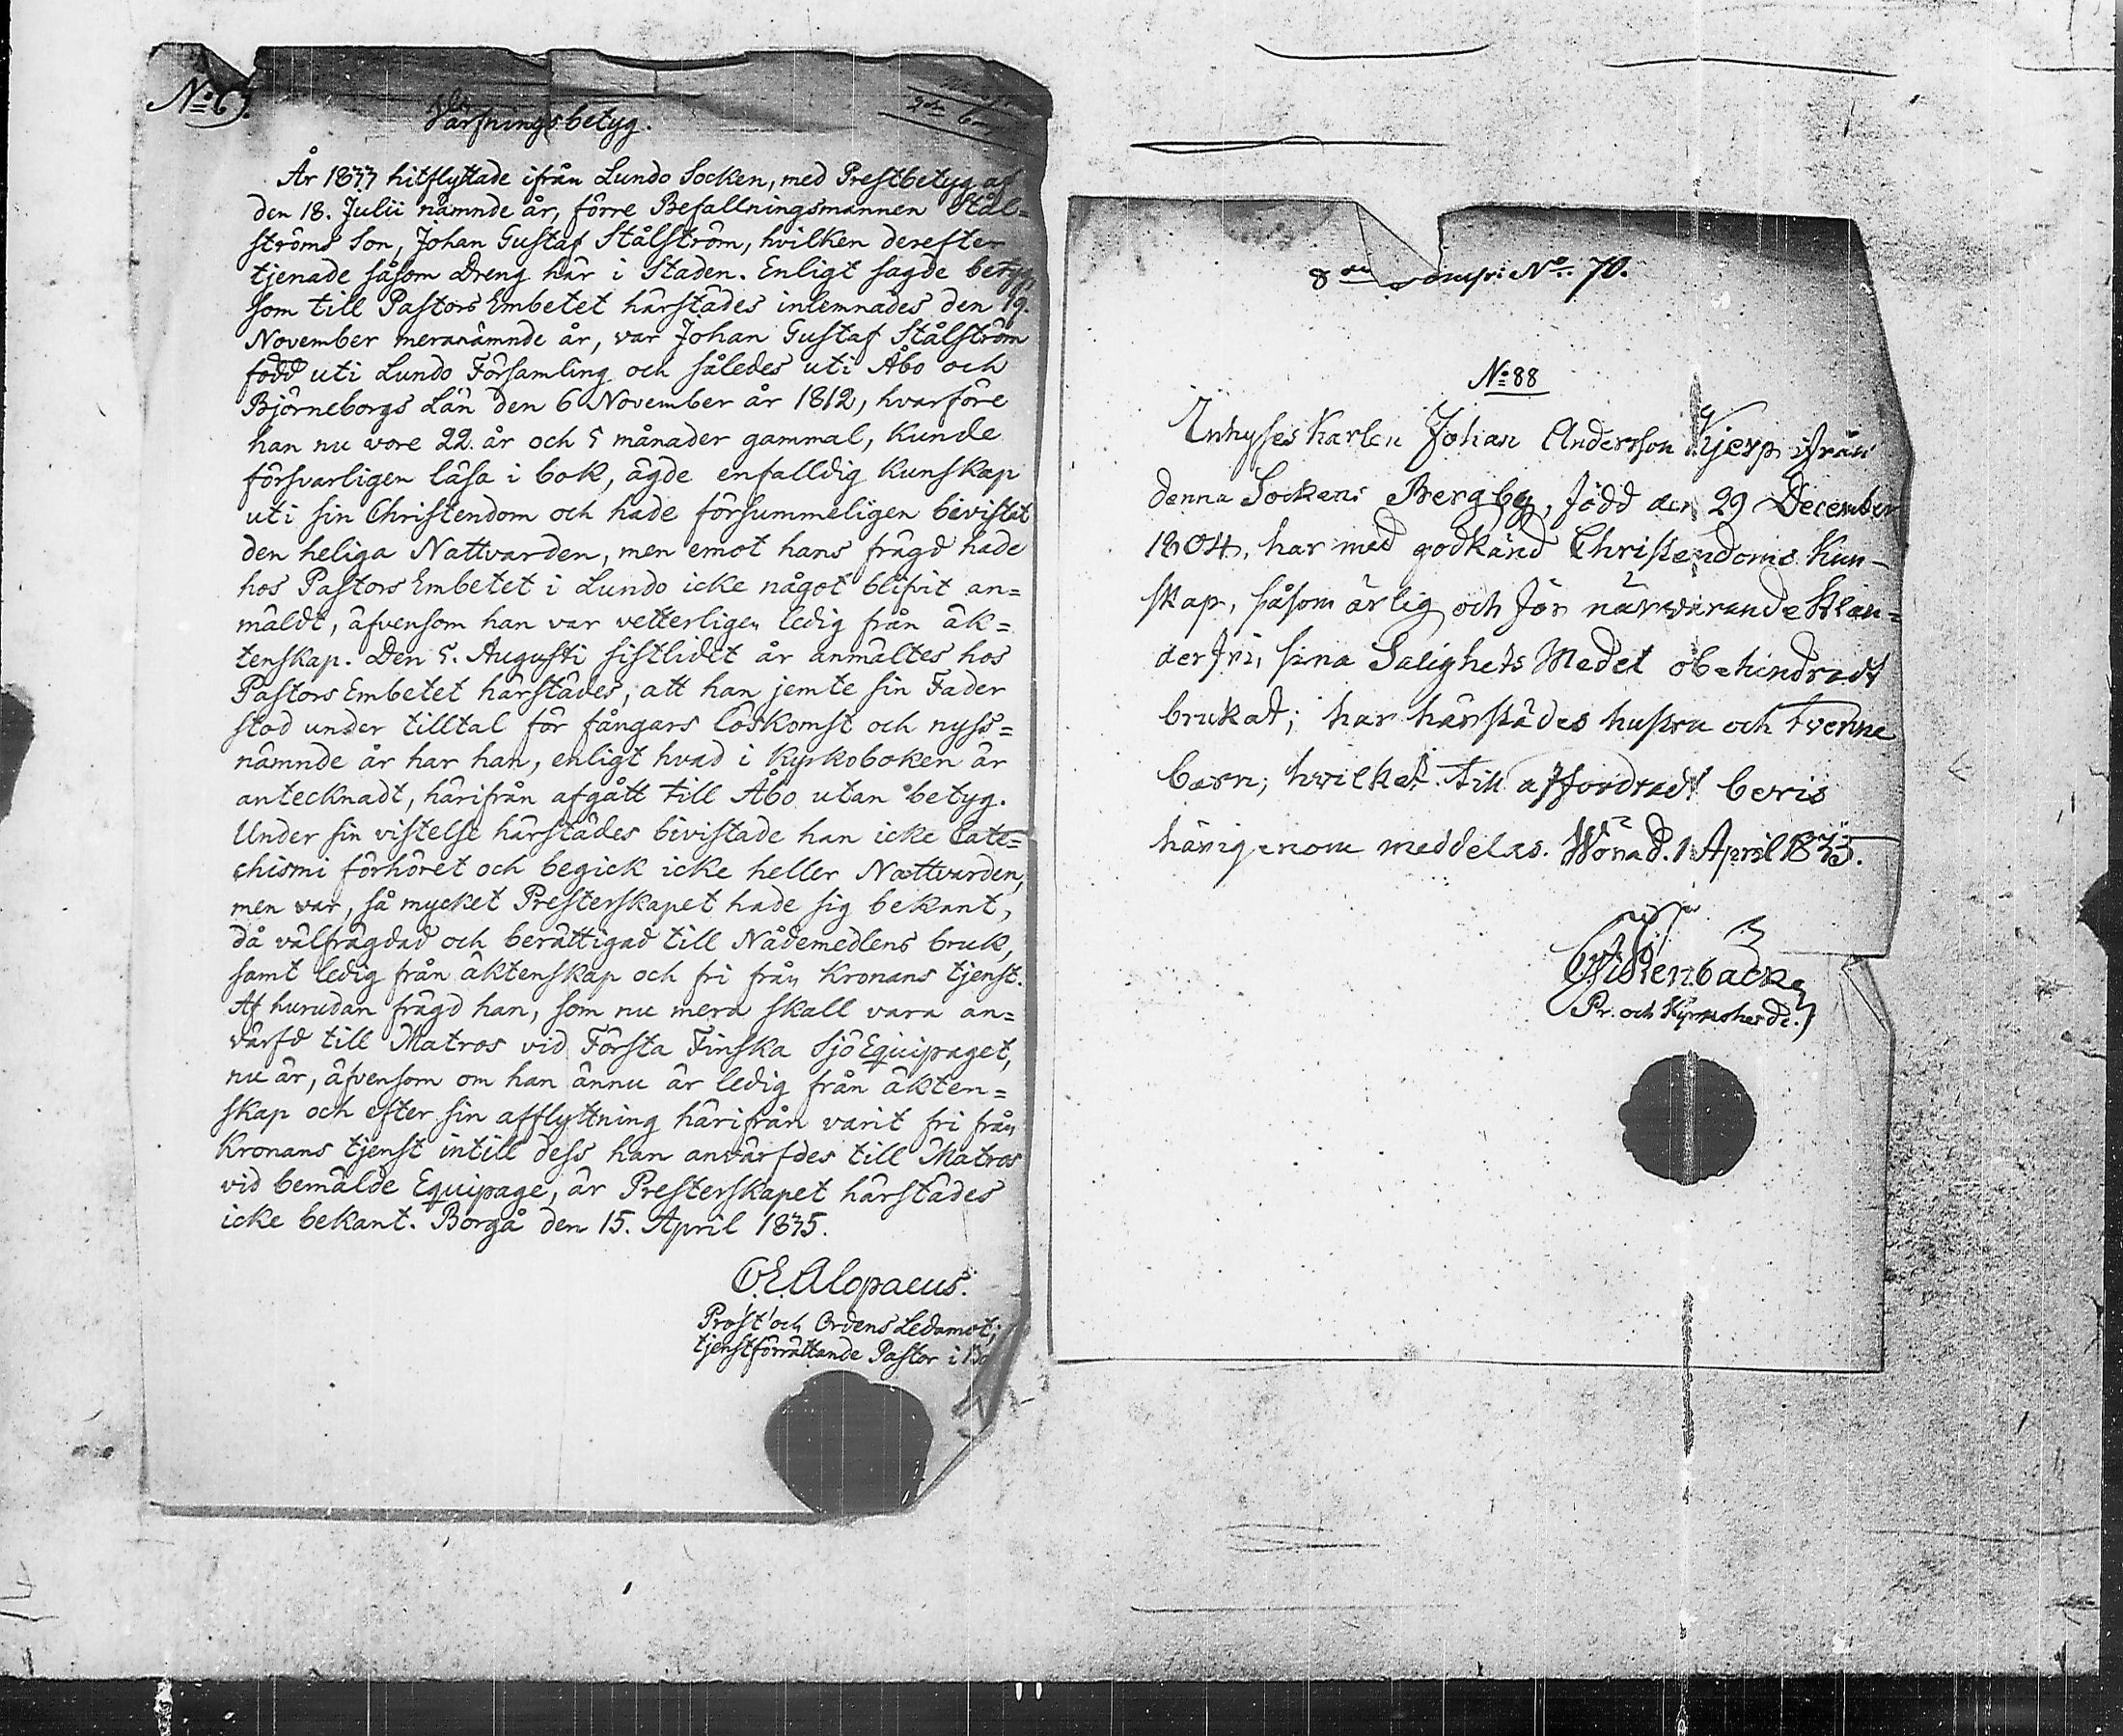 Värfningsbetyg.
År 1833 hitflyttade ifrån Lundo Socken, med Prestbetyg af
den 18. Julii nämnde år, förre Befallningsmannen Stål=
ströms Son, Johan Gustaf Stålström, hvilken derefter
tjenade såsom Dreng här i Staden. Enligt sagde betyg,
som till Pastors Embetet härstädes inlemnades den 19.
November meranämnde år, var Johan Gustaf Stålström
född uti Lundo Församling och således uti Åbo och
Björneborgs Län den 6 November år 1812, hvarföre
han nu vore 22 år och 5 månader gammal, kunde
försvarligen läsa i bok, ägde enfalldig kunskap
uti sin Christendom och hade försummeligen bevistat
den heliga Nattvarden, men emot hans frägd hade
hos Pastors Embetet i Lundo icke något blifvit an=
mäldt, äfvensom han var vetterligen ledig från äk=
tenskap. Den 5. Augusti sistlidet år anmältes hos
Pastors Embetet härstädes, att han jemte sin Fader
stod under tilltal för fångars löskomst och nyss=
nämnde år har han, enligt hvad i Kyrkoboken är
antecknadt, härifrån afgått till Åbo utan betyg.
Under sin vistelse härstädes bivistade han icke Cate=
chismi förhöret och begick icke heller Nattvarden,
men var, så mycket Presterskapet hade sig bekant,
då välfrägdad och berättigad till Nådemedlens bruk,
samt ledig från äktenskap och fri från Kronans tjenst.
Af hurudan frägd han, som nu mera skall vara an=
värfd till Matros vid Första Finska Sjö Equipaget,
nu är, äfvensom om han ännu är ledig från äkten=
skap och efter sin afflyttning härifrån varit fri från
Kronans tjenst intill dess han anvärfdes till Matros
vid bemälde Equipage, är Presterskapet härstädes
icke bekant. Borgå den 15. April 1835.
C. E. Alopaeus.
Prost och Ordens Ledamot,
tjenstförrättande Pastor i
8de Comp: No: 70.
No: 88
Inhyses Karlen Johan Andersson Kjerp ifrån
denna Sockens Bergby, född den 29 December
1804, har med godkänd Christendoms Kun-
skap, såsom ärlig och för närvarande klan=
derfri, sina Salighets Medel obehindradt
brukat; har härstädes hustru och tvenne
barn; hvilket till affordradt bevis
härigenom meddelas. Wörå d. 1 April 1835.
Pr. och Kyrkoherde.